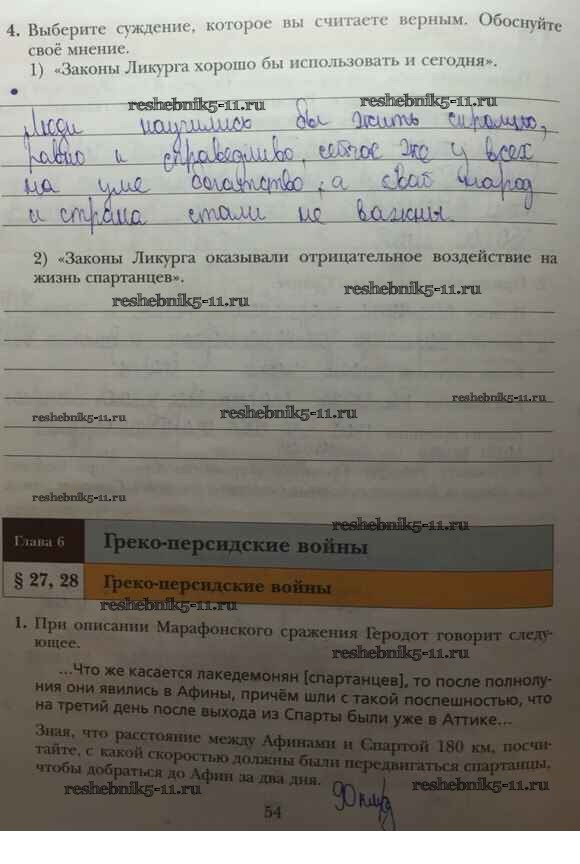 4. Выберите суждение, которое вы считаете верным. Обоснуйте
своё мнение.
1) «Законы Ликурга хорошо бы использовать и сегодня».
reshebnik5-11.ru reshebnik5-11.ru
Люди научились бы жить скромно,
равно и справедливо, сейчас же у всех
на уме богатство, а свой народ
и страна стали не важны.
2) «Законы Ликурга оказывали отрицательное воздействие на
жизнь спартанцев».
reshebnik5-11.ru
reshebnik5-11.ru
reshebnik5-11.ru
reshebnik5-11.ru
reshebnik5-11.ru
reshebnik5-11.ru
reshebnik5-11.ru
Глава 6 Греко-персидские войны
§ 27, 28 Греко-персидские войны
reshebnik5-11.ru
1. При описании Марафонского сражения Геродот говорит следу-
ющее.
reshebnik5-11.ru
...Что же касается лакедемонян [спартанцев], то после полнолу-
ния они явились в Афины, причём шли с такой поспешностью, что
на третий день после выхода из Спарты были уже в Аттике...
Зная, что расстояние между Афинами и Спартой 180 км, посчи-
тайте, с какой скоростью должны были передвигаться спартанцы,
чтобы добраться до Афин за два дня.
reshebnik5-11.ru reshebnik5-11.ru
90 км/д
54